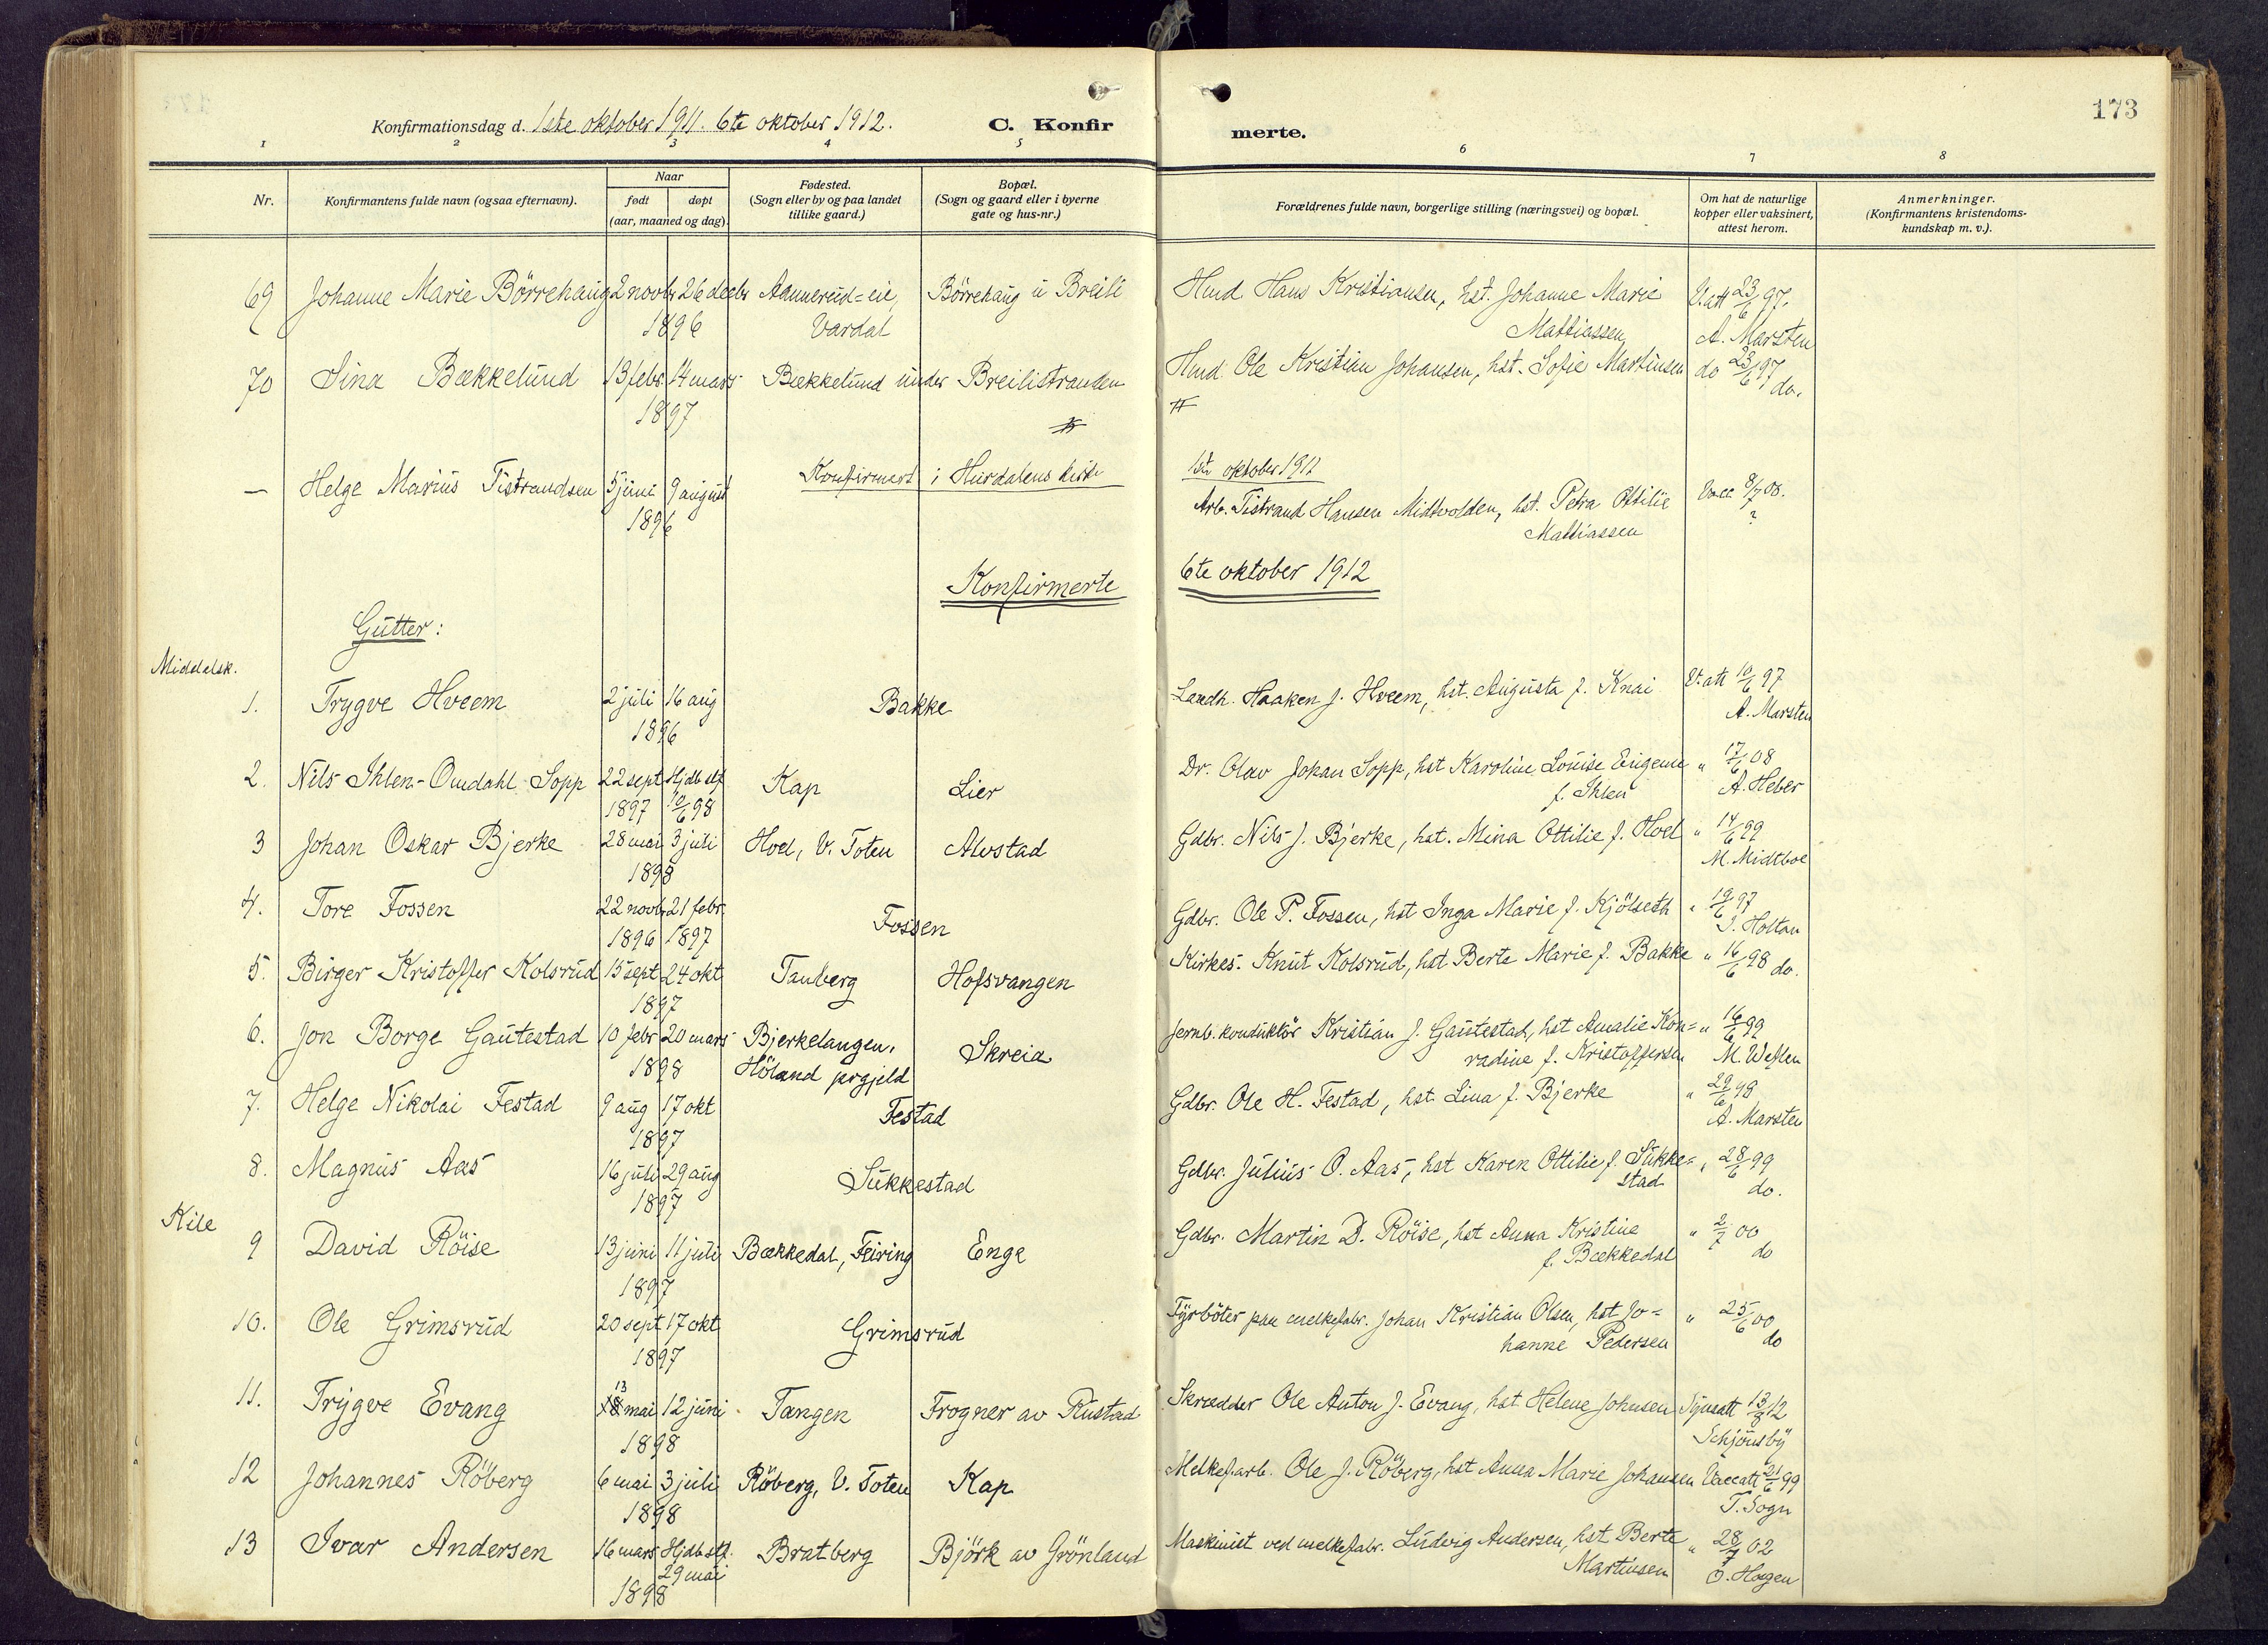 173
Konfirmationsdag d. 1ste oktober 1911. 6te oktober 1912. C. Konfir merte.
1 2 3 4 5 6 7 8
Nr. Konfirmantens fulde navn (ogsaa efternavn). Naar født døpt (aar, maaned og dag). Fødested. (Sogn eller by og paa landet tillike gaard.) Bopæl. (Sogn og gaard eller i byerne gate og hus-nr.) Forældrenes fulde navn, borgerlige stilling (næringsvei) og bopæl. Om hat de naturlige kopper eller vaksinert, attest herom. Anmerkninger. (Konfirmantens kristendoms-kundskap m. v.).
69 Johanne Marie Börrehaug 2 novbr 26 decbr Aannerud=eie, Börrehaug u Breili Hmd Hans Kristiansen, hst. Johanne Marie V.att 23/6 97.
1896 Vardal Mattiassen A. Marsten
70 Sina Bækkelund 13 febr. 14 mars Bækkelund under Breilistranden Hmd. Ole Kristian Johansen, hst. Sofie Martinsen do 23/6 97
1897 do.
— Helge Marius Tistrandsen 5 juni 9 august Konfirmert i Hurdalens kirke 1ste oktober 1911
1896 Arb. Tistrand Hansen Midtvolden, hst. Petra Ottilie Vacc 8/7 08.
Mattiassen ?
Konfirmerte 6te oktober 1912
Gutter:
Middelsk.
1. Trygve Hveem 2 juli 16 aug Bakke Landh. Haaken J. Hveem, hst. Augusta f. Knai V.att 10/6 97
1896 A. Marsten
2. Nils Ihlen-Omdahl Sopp 22 sept Hjdb stf Kap Lier Dr. Olav Johan Sopp, hst Karoline Louise Eugenie " 17/6 08
1897 10/6 98 f. Ihlen A. Heber
3 Johan Oskar Bjerke 28 mai 3 juli Hoel, V. Toten Alvstad Gdbr. Nils J. Bjerke, hst. Mina Ottilie f. Hoel " 14/6 99
1898 M. Midtboe
4. Tore Fossen 22 novbr 21 febr. Fossen Gdbr. Ole P. Fossen, hst Inga Marie f. Kjölseth " 19/6 97
1896 1897 J. Holtan
5. Birger Kristoffer Kolsrud 15 sept 24 okt Tanberg Hofsvangen Kirkes. Knut Kolsrud, hst Berte Marie f. Bakke " 16/6 98 do.
1897
6. Jon Borge Gautestad 10 febr 20 mars Bjerkelangen, Skreia Jernb. konduktör Kristian J. Gautestad, hst Amalie Kon= " 16/6 99
1898 Höland prgjeld radine f. Kristoffersen M. Weflen
7. Helge Nikolai Festad 9 aug 17 okt Festad Gdbr. Ole H. Festad, hst. Lina f. Bjerke " 29/6 98
1897 A. Marsten
8. Magnus Aas 16 juli 29 aug Sukkestad Gdbr. Julius O. Aas, hst Karen Ottilie f. Sukke= " 28/6 99
1897 stad do.
Kile
9 David Röise 13 juni 11 juli Bækkedal, Feiring Enge Gdbr. Martin D. Röise, hst Anna Kristine " 2/7 00
1897 f. Bækkedal do
10. Ole Grimsrud 20 sept 17 okt Grimsrud Fyrböter paa melkefabr. Johan Kristian Olsen, hst Jo= " 25/6 00
1897 hanne Pedersen do
11. Trygve Evang 13 mai 12 juni Tangen Frogner av Rustad Skrædder Ole Anton J. Evang, hst Helene Johnsen 13/8 12
1898 Schjönsby
12 Johannes Röberg 6 mai 3 juli Röberg, V. Toten Kap Melkefarb. Ole J. Röberg, hst Anna Marie Johansen Vaccatt 21/6 99
1898 T. Sogn
13 Ivar Andersen 16 mars Hjdb stf. Bratberg Björk av Grönland Maskinist ved melkefabr. Ludvig Andersen, hst Berte " 28/7 02
29 mai Martinsen O. Hagen
1898